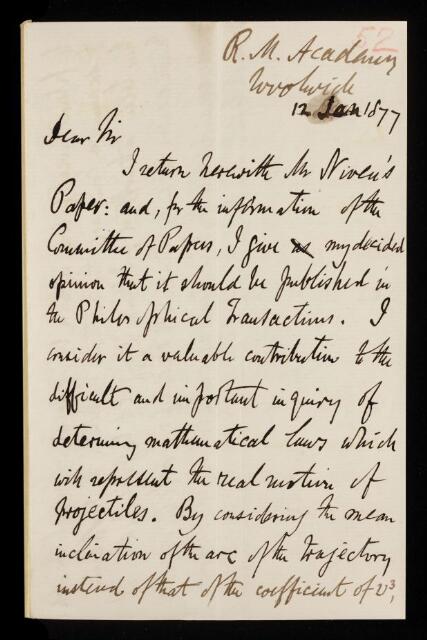 52
R. M. Academy
Woolwich
12 Jan 1877
Dear Sir
I return herewith Mr Niven's
Paper: and, for the information of the
Committee of Papers, I give as my decided
opinion that it should be published in
the Philosophical Transactions. I
consider it a valuable contribution to the
difficult and important inquiry of
determining mathematical laws which
will represent the real motion of
projectiles. By considering the mean
inclination of the arc of the trajectory
instead of that of the coefficient of v³,